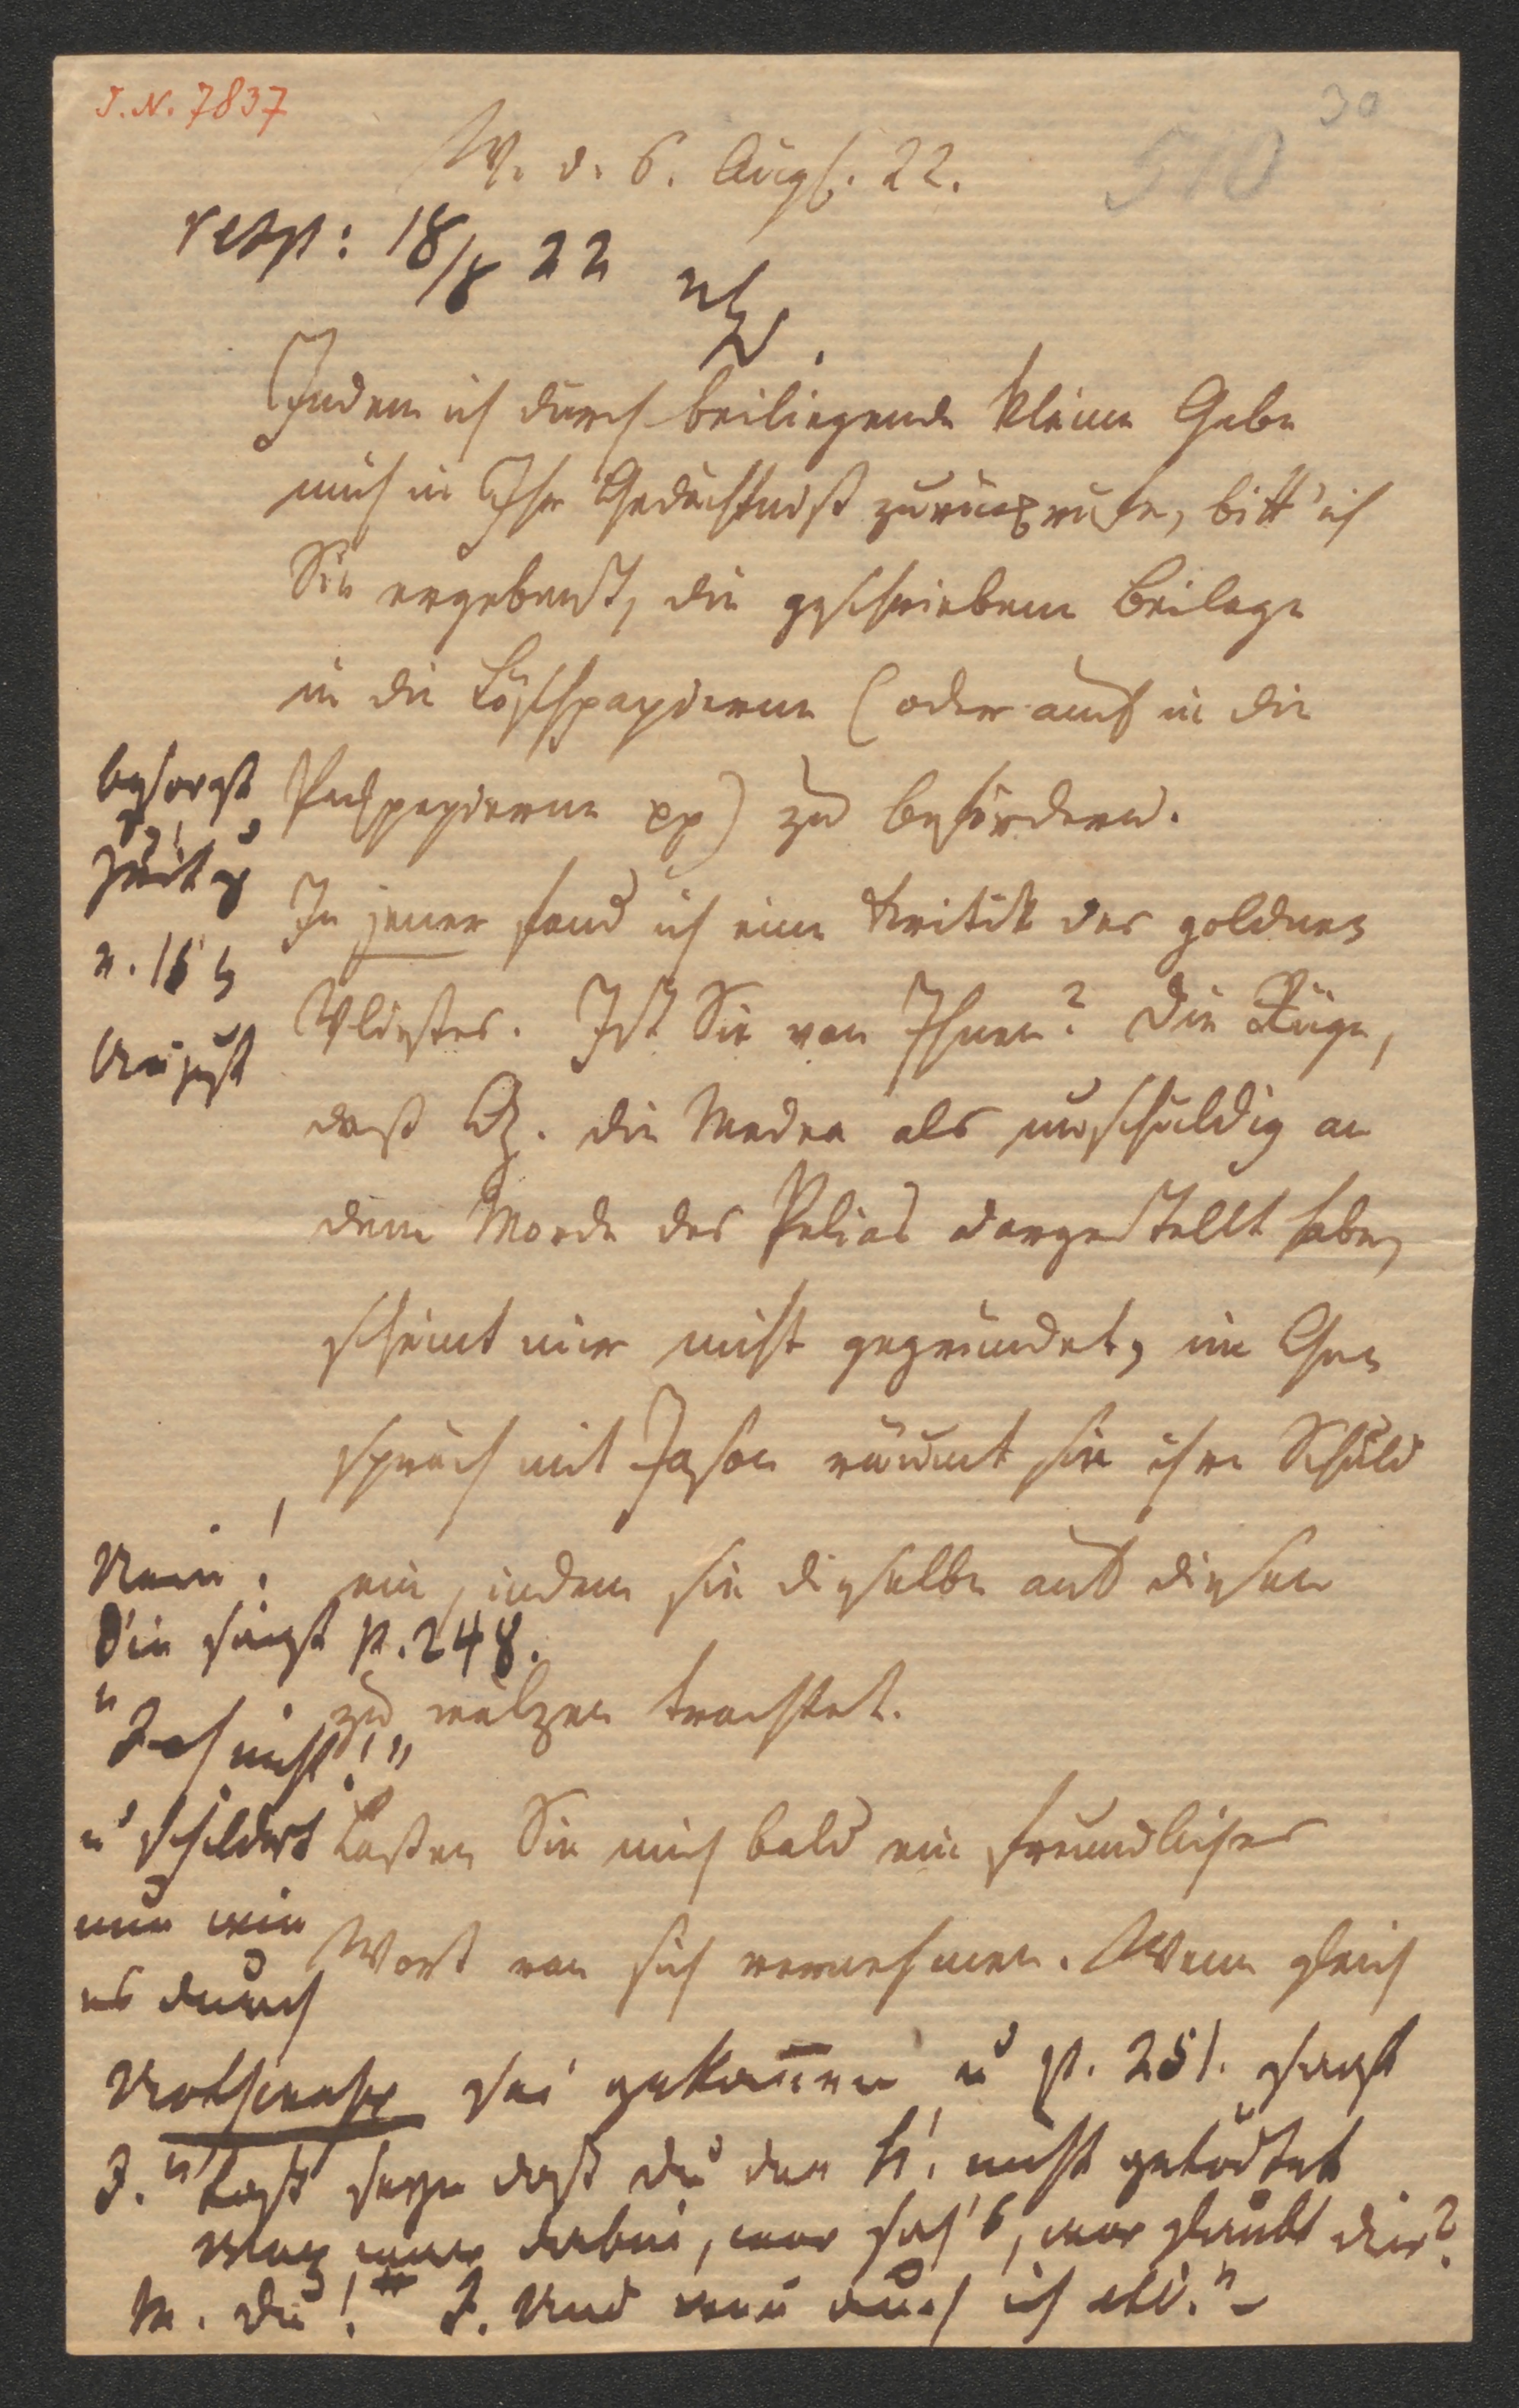 I. N. 7837
30
510
W. d. 6. Aug. 22.
resp: 18/8 22
Indem ich durch beiliegende kleine Gabe
mich in Ihr Gedächtniß zurückrufe, bitt' ich
Sie ergebenst, die geschriebene Beilage
in die Löschpapierne (oder auch in die
Packpapierne pp) zu befördern.
In jener fand ich eine Kritik des goldnen
Vließes. Ist Sie von Ihnen? Die Rüge,
daß G. die Medea als unschuldig an
dem Morde des Pelias dargestellt habe,
scheint mir nicht gegründet, im Ge-
spräch mit Jason räumt sie ihre Schuld
ein, indem sie dieselbe auf diesen
zu wälzen trachtet.
Laßen Sie mich bald ein freundliches
Wort von sich vernehmen. Wenn gleich
besorgt
n. 16
August
Nein!
Sie sagt p. 248.
"Ich nicht!"
u schildert
nun wie
es durch
Nothwehr sei gekommen u p. 251. sagt
J. "Laß seyn daß du den K. nicht getödtet
wer war dabei, wer sah's, wer glaubt dir?
M. Du! J. Und wenn auch ich